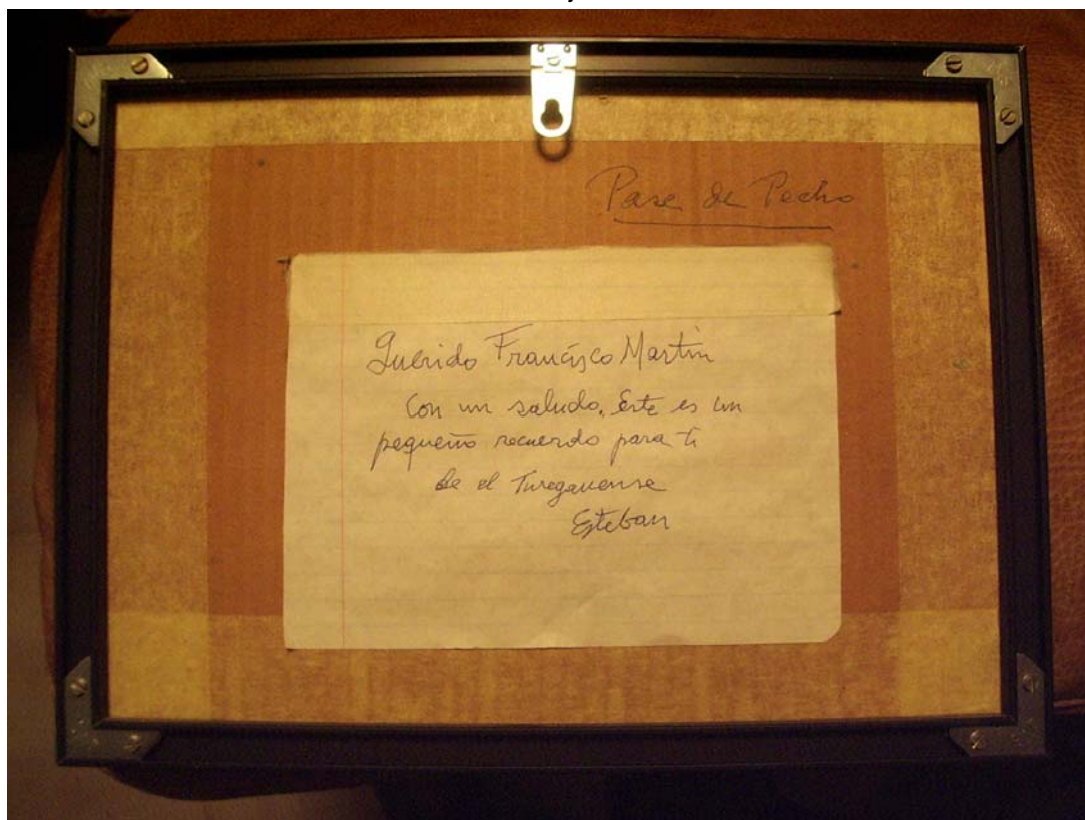 Pase de Pecho
Querido Francisco Martin
Con un saludo, Este es un
pequeño recuerdo para ti
de el Tureganense
Esteban